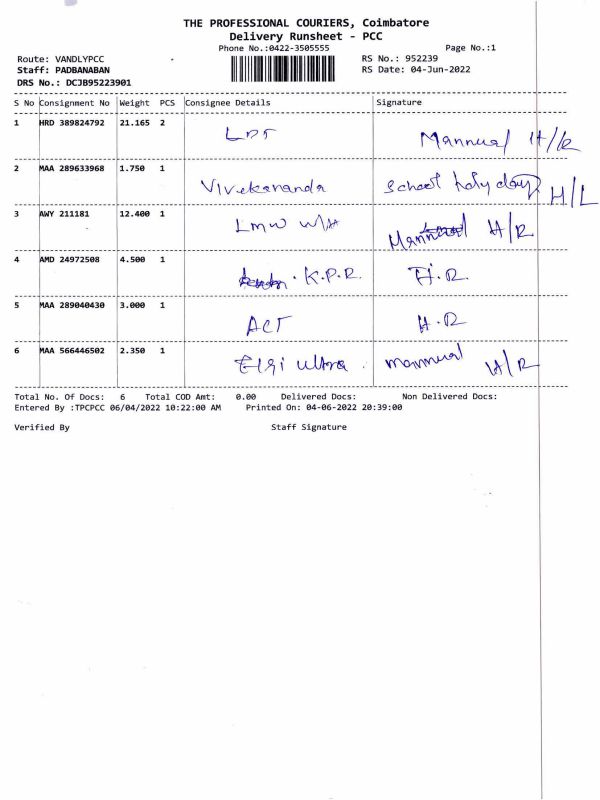 THE PROFESSIONAL COURIERS, Coimbatore
Delivery Runsheet - PCC
Phone No.:0422-3505555 Page No.:1
Route: VANDLYPCC RS No.: 952239
Staff: PADBANABAN RS Date: 04-Jun-2022
DRS No.: DCJB95223901
S No Consignment No Weight PCS Consignee Details Signature
1 HRD 389824792 21.165 2 Mannual H/R
2 MAA 289633968 1.750 1 Vivekananda School holyday H/L
3 AWY 211181 12.400 1 LMW W/H Mannual H/R
4 AMD 24972508 4.500 1 K.P.R. H.R.
5 MAA 289040430 3.000 1 ACT H.R
6 MAA 566446502 2.350 1 Elgi ultra. manmual H/R
Total No. Of Docs: 6 Total COD Amt: 0.00 Delivered Docs: Non Delivered Docs:
Entered By :TPCPCC 06/04/2022 10:22:00 AM Printed On: 04-06-2022 20:39:00
Verified By Staff Signature